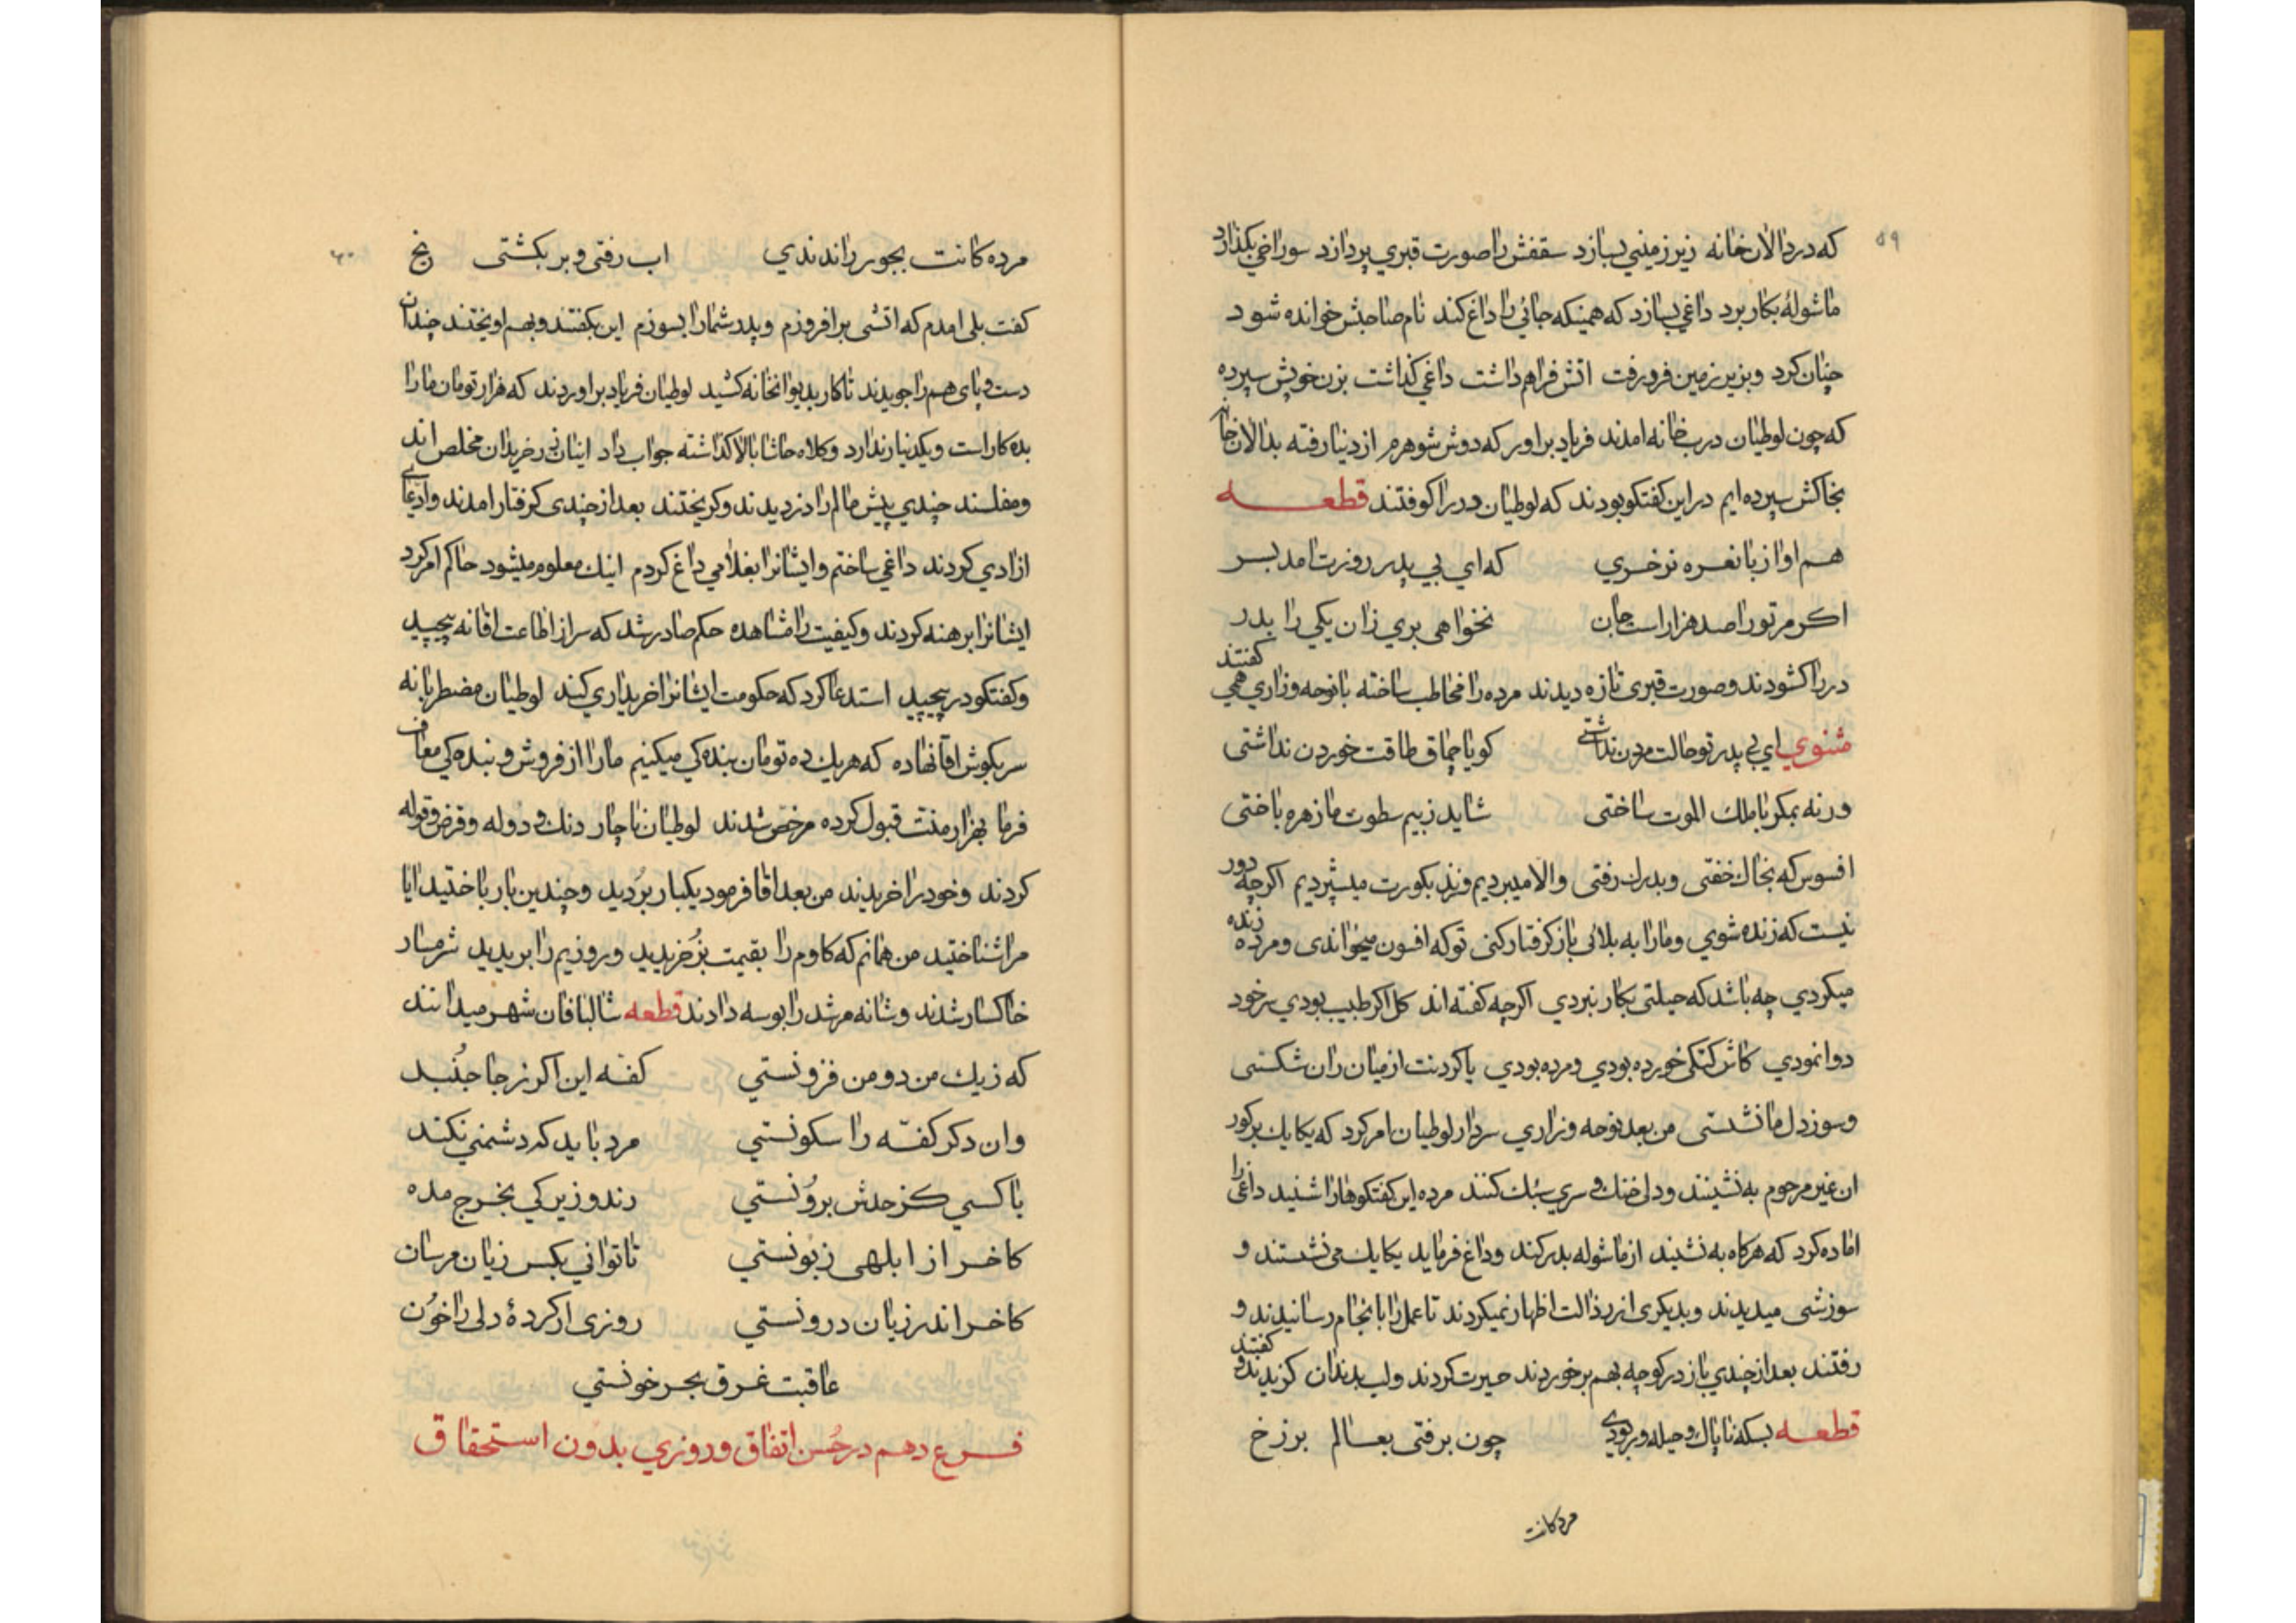 ۵۹
که در دالان خانه زیر زمینی بسازد سقفش را صورت قبری پردازد سوراخی بکذارد
ماشولهٔ بکار برد داغی بسازد که همینکه جائی را داغ کند نام صاحبش خوانده شود
چنان کرد و بزیر زمین فرو رفت اتش فراهم داشت داغی کذاشت بزن خویش سپرده
که چون لوطیان درب خانه امدند فریاد براور که دوش شوهرم از دنیا رفته بدالان خانه
بخاکش سپرده ایم در این کفتکو بودند که لوطیان در را کوفتند قطعه
هم اواز با نعره نر خری که ای بی پدر روزت امد بسر
اکر مر تو را صد هزار است جان نخواهی بری زان یکی را بدر
در را کشودند و صورت قبری تازه دیدند مرده را مخاطب ساخته با نوحه و زاری همی کفتند
مثنوی ای بی پدر تو حالت مردن نداشتی کویا چماق طاقت خوردن نداشتی
ورنه بمکر با ملک الموت ساختی شاید ز بیم سطوت ما زهره باختی
افسوس که بخاک خفتی و بدرک رفتی والا میبردیم و زنده بکورت میسپردیم اکرچه دور
نیست که زنده شوی و ما را به بلائی باز کرفتار کنی تو که افسون میخواندی و مرده زنده
میکردی چه باشد که حیلتی بکار نبردی اکرچه کفته اند کل اکر طبیب بودی سر خود
دوا نمودی کاش کتکی خورده بودی و مرده بودی یا کردنت از میان ران شکستی
و سوز دل ما نشستی من بعد نوحه و زاری سردار لوطیان امر کرد که یکایک بر کور
ان غیر مرحوم به نشینند و دلی خنک و سری سبک کنند مرده این کفتکوها را شنید داغی را
اماده کرد که هرکاه به نشیند از ماشوله بدر کند و داغ فرماید یکایک می نشستند و
سوزشی میدیدند و بدیکری از رذالت اظهار نمیکردند تا عمل را بانجام رسانیدند و
رفتند بعد از چندی باز در کوچه بهم برخوردند حیرت کردند و لب بدندان کزیدند و کفتند
قطعه بسکه ناپاک و حیله ور بودی چون برفتی بعالم برزخ
مرده کانت
۶۰
مرده کانت بجور راندندی اب رفتی و بر بکشتی یخ
کفت بلی امدم که اتشی برافروزم و پدر شما را بسوزم این بکفتند و بهم اویختند چندان
دست و پای هم را جویدند تا کار بدیوانخانه کشید لوطیان فریاد براوردند که هزار تومان ما را
بده کار است و یکدینار ندارد و کلاه حاشا بالا کذاشته جواب داد اینان زر خریدان مخلص اند
و مفلسند چندی پیش مالم را دزدیدند و کریختند بعد از چندی کرفتار امدند و ادعای
ازادی کردند داغی ساختم و ایشانرا بغلامی داغ کردم اینک معلوم میشود حاکم امر کرد
ایشانرا برهنه کردند و کیفیت را مشاهده حکم صادر شد که سر از اطاعت اقا نه پیچید
و کفتکو در پیچید استدعا کرد که حکومت ایشانرا خریداری کند لوطیان مضطربانه
سر بکوش اقا نهاده که هر یک ده تومان بنده کی میکنیم ما را از فروش و بنده کی معاف
فرما بهزار منت قبول کرده مرخص شدند لوطیان ناچار دنک و دوله و قرض و قوله
کردند و خود را خریدند من بعد اقا فرمود یکبار بردید و چندین بار باختید ایا
مرا شناختید من همانم که کاوم را بقیمت بز خریدید و روزیم را بریدید شرمسار
خاکسار شدند و شانه مرشد را بوسه دادند قطعه شالبافان شهر میدانند
که ز یک من دو من فزونستی کفه این اکر ز جا جنبد
وان دکر کفه را سکونستی مرد باید که دشمنی نکند
با کسی کز حدش برونستی رند و زیرکی بخرج مده
کاخر از ابلهی زبونستی تا توانی بکس زیان مرسان
کاخر اندر زیان درونستی روزی ار کردهٔ دلی را خون
عاقبت غرق بحر خونستی
فرع دهم در حسن اتفاق و روزی بدون استحقاق